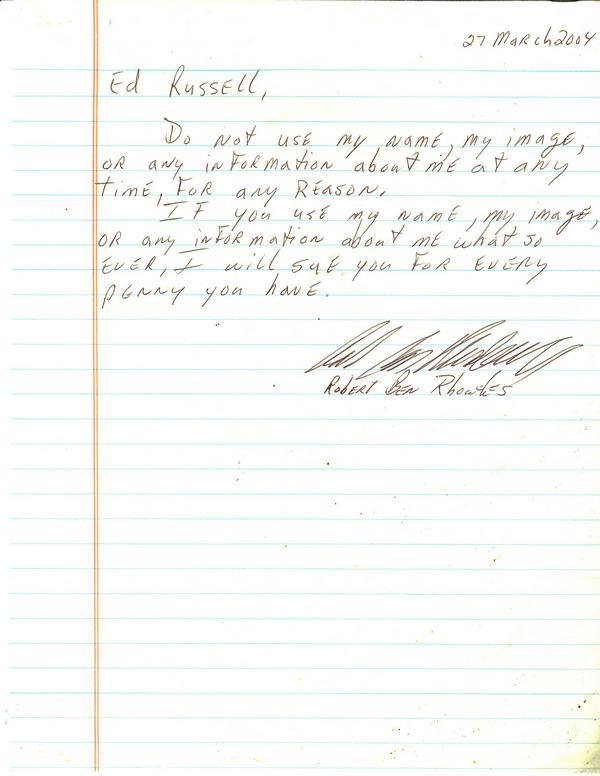 27 March 2004
Ed Russell,
Do not use my name, my image,
or any information about me at any
time, for any reason.
If you use my name, my image,
or any information about me what so
ever, I will sue you for every
penny you have.
Robert Ben Rhoades